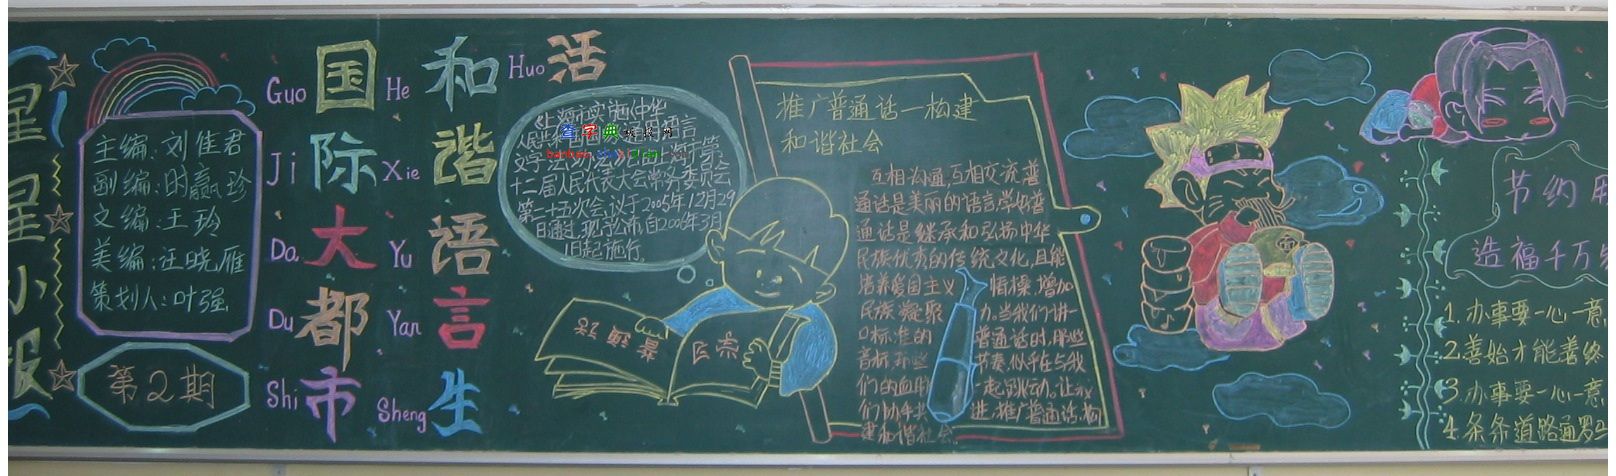 星星小报
主编:刘佳君
副编:田赢珍
文编:王玲
美编:汪晓雁
策划人:叶强
第2期
Guo 国
Ji 际
Da 大
Du 都
Shi 市
He 和
Xie 谐
Yu 语
Yan 言
Sheng 生
Huo 活
《上海市实施《中华
人民共和国
文字法
十二届人民代表大会常务委员会
第二十五次会议于2005年12月29
日通过,现予公布,自2006年3月
1日起施行。
查字典
推广普通话—构建
和谐社会
互相沟通,互相交流,普
通话是美丽的语言学好普
通话是继承和弘扬中华
民族优秀的传统文化,且能
培养爱国主义情操,增加
民族凝聚力.当我们讲一
口标准的普通话时,那些
音标,那些节奏似乎在与我
们的血
们协手共进,推广普通话,构
建和谐社会.
节约用
造福千万
1.办事要一心一意
2.善始才能善终
3.办事要一心一意
4.条条道路通罗马